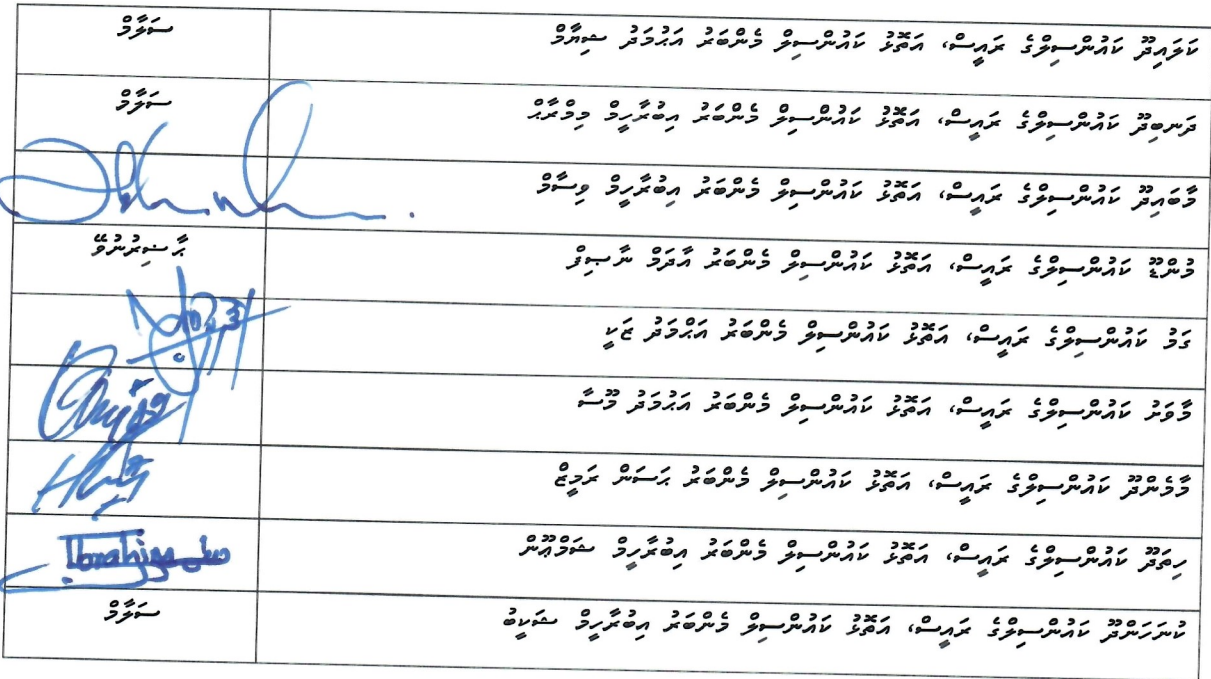 ކަލައިދޫ ކައުންސިލްގެ ރައީސް، އަތޮޅު ކައުންސިލް މެންބަރު އަޙުމަދު ޝިޔާމް ސަލާމް
ދަނބިދޫ ކައުންސިލްގެ ރައީސް، އަތޮޅު ކައުންސިލް މެންބަރު އިބްރާހީމް މިމްރާޙް ސަލާމް
މާބައިދޫ ކައުންސިލްގެ ރައީސް، އަތޮޅު ކައުންސިލް މެންބަރު އިބުރާހީމް ވިސާމް
މުންޑޫ ކައުންސިލްގެ ރައީސް، އަތޮޅު ކައުންސިލް މެންބަރު އާދަމް ނާޞިފް ޙާޟިރުނުވޭ
ގަމު ކައުންސިލްގެ ރައީސް، އަތޮޅު ކައުންސިލް މެންބަރު އަޙްމަދު ޒަކީ
މާވަށު ކައުންސިލްގެ ރައީސް، އަތޮޅު ކައުންސިލް މެންބަރު އަޙުމަދު މޫސާ
މާމެންދޫ ކައުންސިލްގެ ރައީސް، އަތޮޅު ކައުންސިލް މެންބަރު ޙަސަން ރަމީޒް
ހިތަދޫ ކައުންސިލްގެ ރައީސް، އަތޮޅު ކައުންސިލް މެންބަރު އިބުރާހީމް ޝަމްޢޫން Ibrahim
ކުނަހަންދޫ ކައުންސިލްގެ ރައީސް، އަތޮޅު ކައުންސިލް މެންބަރު އިބުރާހީމް ޝަކީބު ސަލާމް